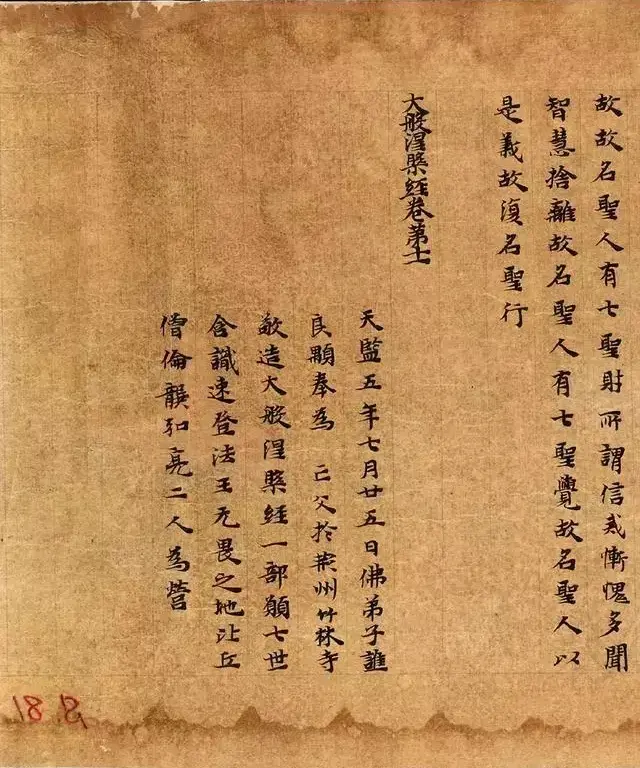 故故名聖人有七聖財所謂信戒慚愧多聞
智慧捨離故名聖人有七聖覺故名聖人以
是義故復名聖行
大般涅槃經卷第十一
天監五年七月廿五日佛弟子譙
良顒奉為 亡父於荊州竹林寺
敬造大般涅槃經一部願七世
含識速登法王无畏之地比丘
僧倫龔弘亮二人為營